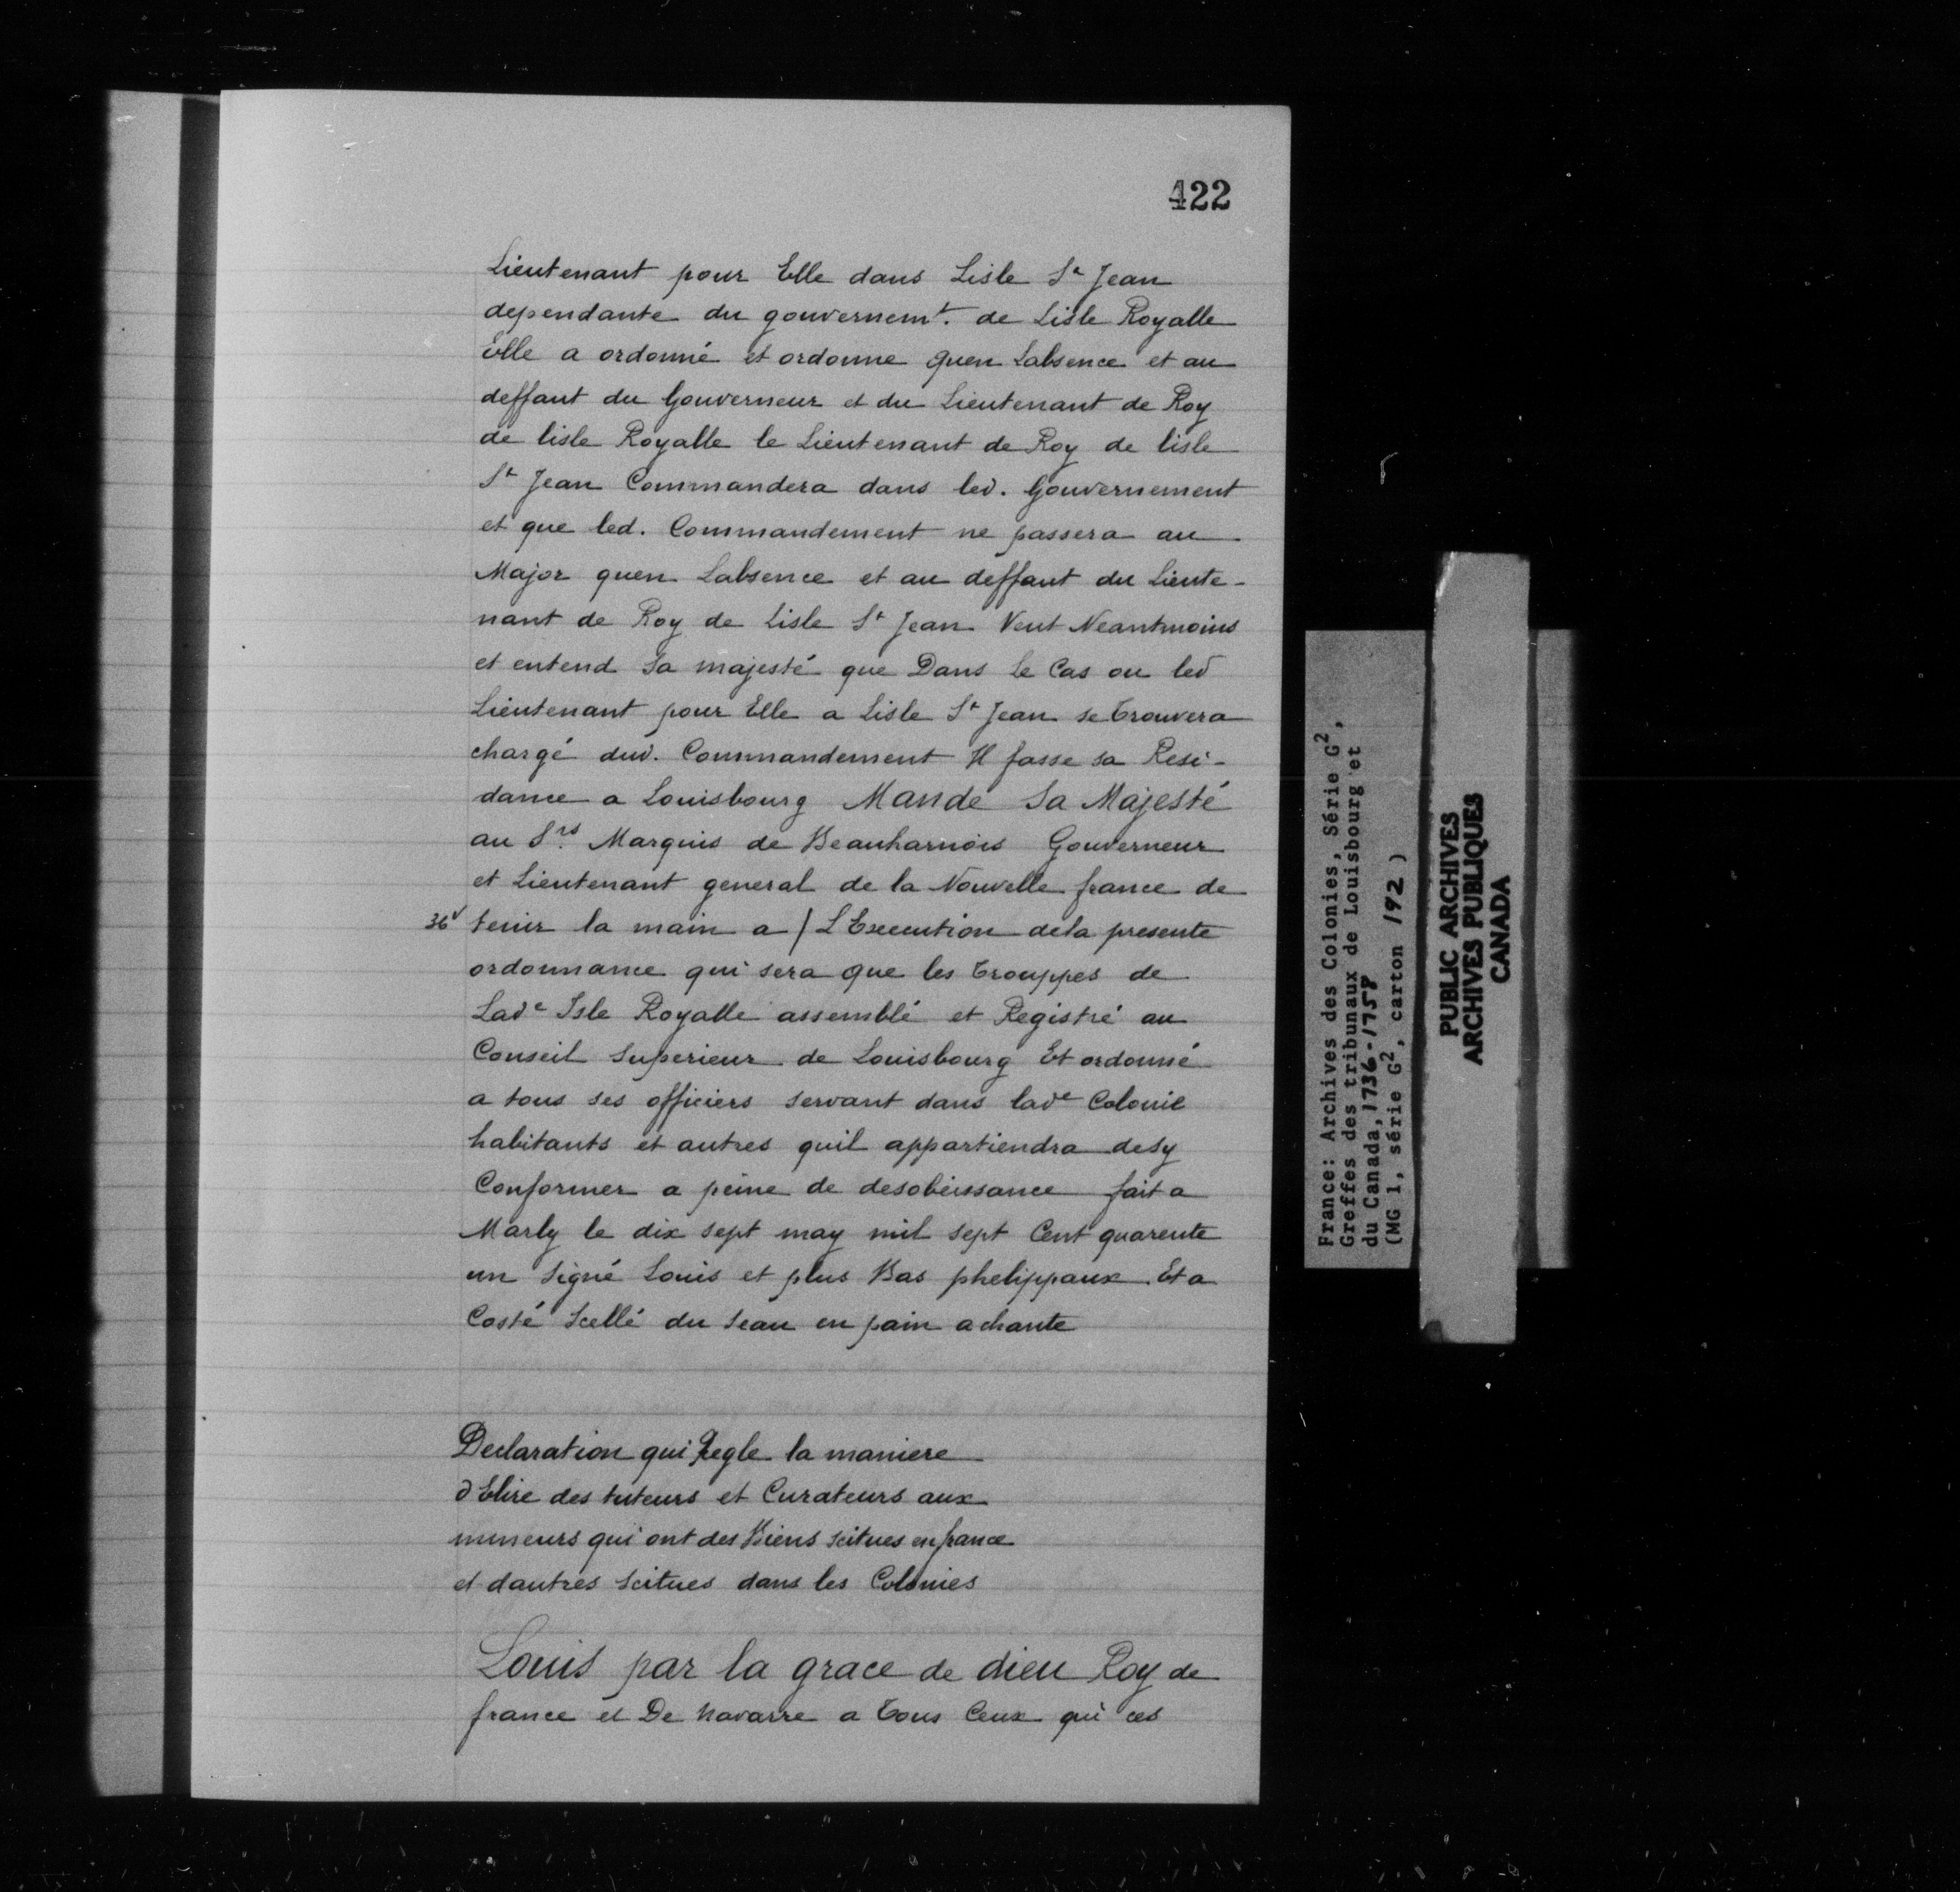 422
Lieutenant pour Elle dans Lisle St Jean
dependante du gouvernemt. de Lisle Royalle
Elle a ordonné et ordonne quen Labsence et au
deffaut du Gouverneur et du Lieutenant de Roy
de lisle Royalle le Lieutenant de Roy de lisle
St Jean Commandera dans led. Gouvernement
et que led. Commandement ne passera au
Major quen Labsence et au deffaut du Lieute-
nant de Roy de Lisle St Jean Veut Neantmoins
et entend Sa majesté que Dans le Cas ou led
Lieutenant pour Elle a Lisle St Jean se trouvera
chargé dud. Commandement Il fasse sa Resi-
dance a Louisbourg Mande Sa Majesté
au Srs Marquis de Beauharnois Gouverneur
et Lieutenant general de la Nouvelle france de
36v tenir la main a / L Execution dela presente
ordonnance qui sera que les trouppes de
Lade Isle Royalle assemblé et Registré au
Conseil Superieur de Louisbourg Et ordonné
a tous ses officiers servant dans lade Colonie
habitants et autres quil appartiendra desy
Conformer a peine de desobeissance fait a
Marly le dix sept may mil sept Cent quarente
un Signé Louis et plus Bas phelippaux. Et a
Costé Scellé du Seau en pain a chante
Declaration qui Regle la maniere
d Elire des tuteurs et Curateurs aux
mineurs qui ont des Biens scitues en france
et dautres scitues dans les Colonies
Louis par la grace de dieu Roy de
france et De Navarre a tous Ceux qui ces
France: Archives des Colonies, Série G2,
Greffes des tribunaux de Louisbourg et
du Canada, 1736-1758
(MG 1, série G2, carton 192)
PUBLIC ARCHIVES
ARCHIVES PUBLIQUES
CANADA